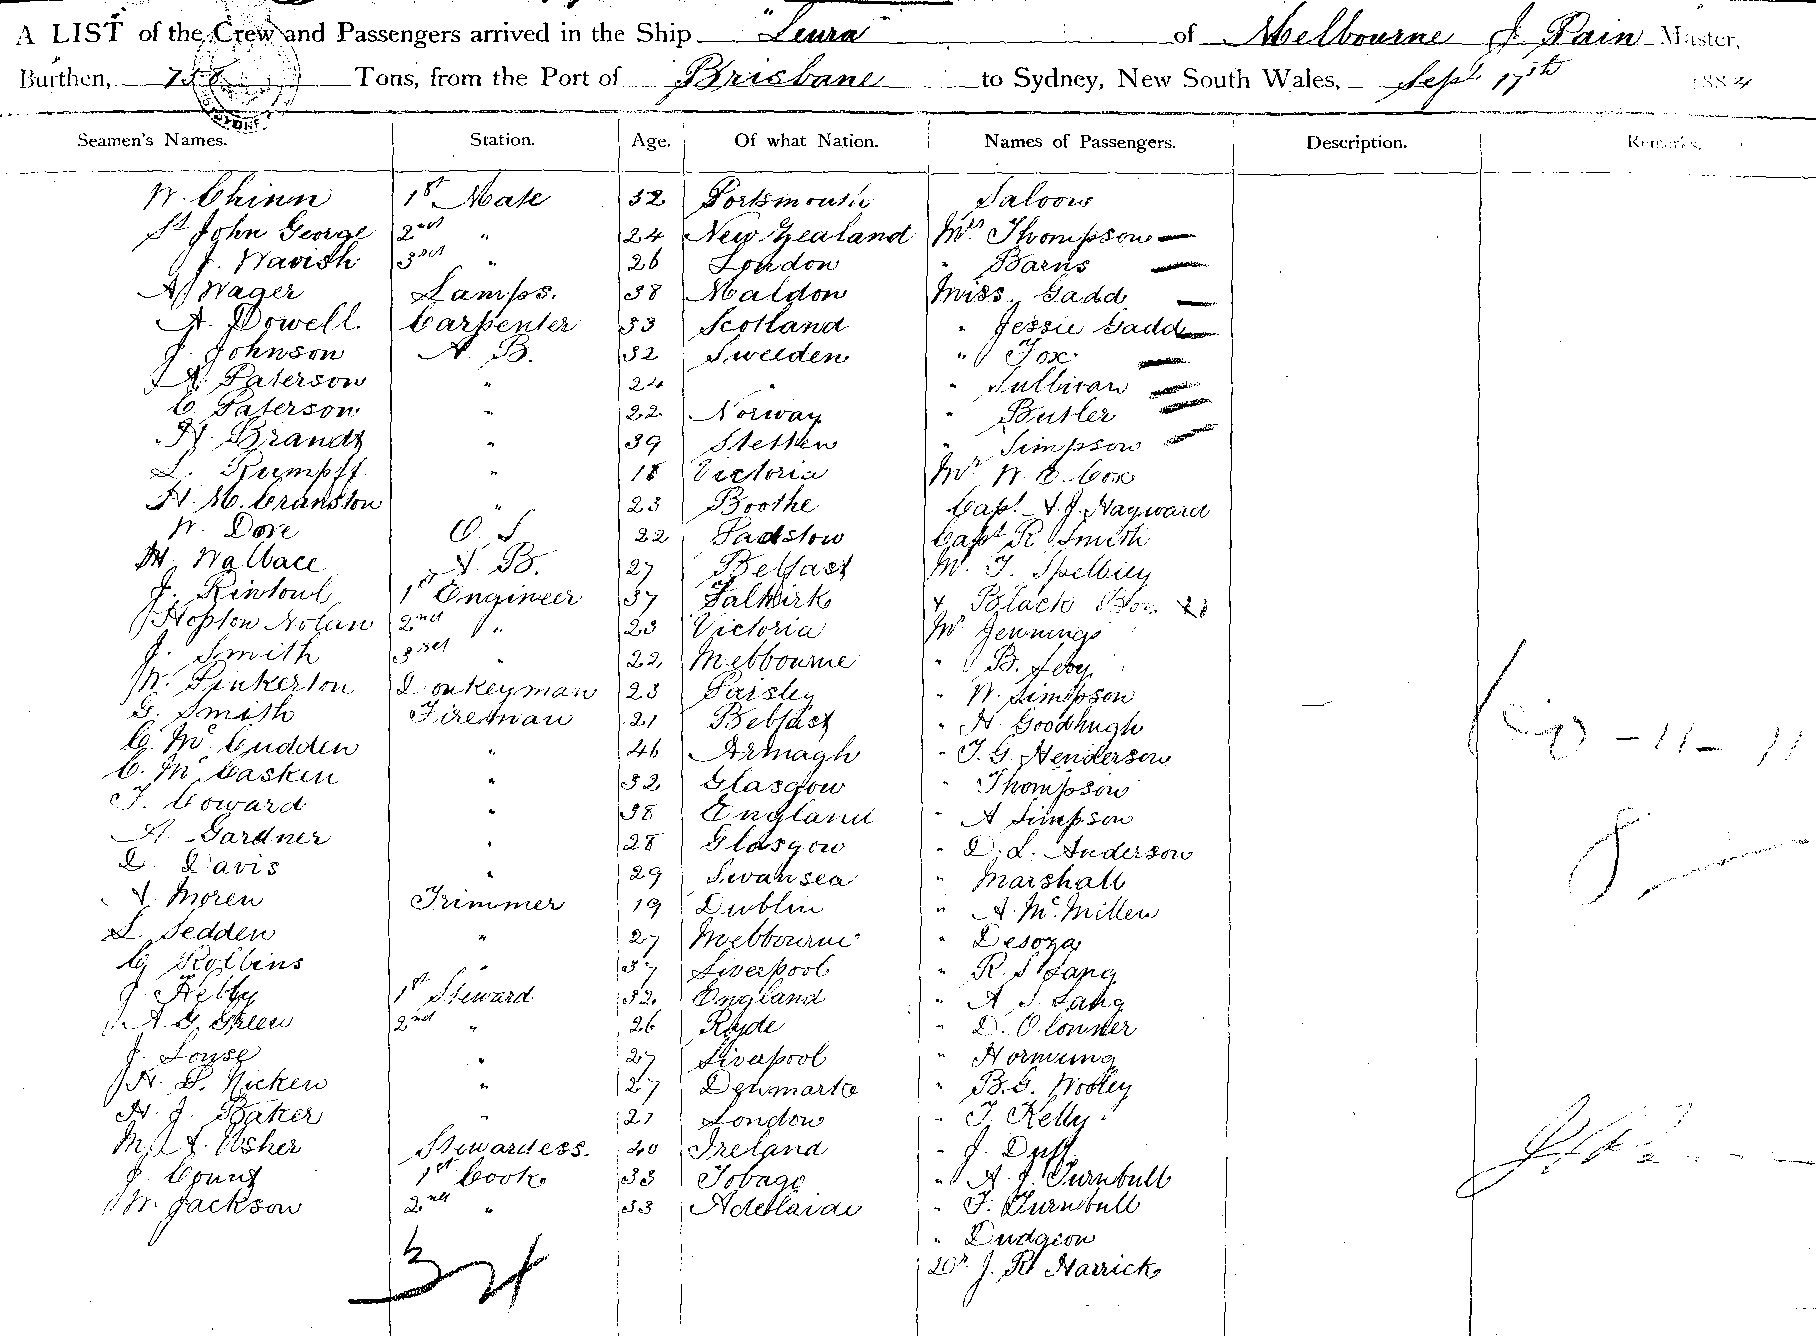 A LIST of the Crew and Passengers arrived in the Ship "Leura" of Melbourne J. Pain Master,
Burthen, Tons, from the Port of Brisbane to Sydney, New South Wales, Sept 17th 1884
Seamen's Names. Station. Age. Of what Nation. Names of Passengers. Description. Remarks.
W. Chinn 1st Mate 32 Portsmouth Saloon
St John George 2nd " 24 New Zealand Mrs Thompson
J. Wavish 3rd " 26 London " Barns
A Wager Lamps. 38 Maldon Miss. Gadd
A. Powell Carpenter 33 Scotland " Jessie Gadd
J. Johnson A. B. 32 Sweeden " Fox
A. Paterson " 24 " " Sullivan
C. Paterson " 22 Norway " Butler
H. Brandt " 39 Stetten " Simpson
L. Rumpff " 18 Victoria Mr W. C. Cox
H. M. Cranston " 23 Boothe Capt. A. J. Hayward
W. Dove O. S 22 Padstow Capt R Smith
W. Wallace A. B. 27 Belfast Mr F.
J. Rintoul 1st Engineer 37 Falkirk & Black Boy
Hopton Nolan 2nd " 23 Victoria Mr Jennings
J. Smith 3rd " 22 Melbourne " B. Levy
W. Pinkerton Donkeyman 23 Paisley " W. Simpson
G. Smith Fireman 21 Belfast " H. Goodhugh
C. Mc Cudden " 46 Armagh " T. G. Henderson
C. Mc Casken " 32 Glasgow " Thompson
T. Coward " 38 England " A Simpson
A. Gardner " 28 Glasgow " D. L. Anderson
D. Davis " 29 Swansea " Marshall
A. Moren Trimmer 19 Dublin " A. Mc Millen
L. Sedden " 27 Melbourne " Desoza
G Rollins " 37 Liverpool " R. S Lang
J. Kelly 1st Steward 32 England " A S. Lang
A. G. Green 2nd " 26 Ryde " D. O Conner
J. Louse " 27 Liverpool " Hornung
H. P. Nicken " 27 Denmark " B. G. Wooley
H. J. Baker " 21 London " T. Kelly
M. A. Usher Stewardess. 40 Ireland " J. Duff
J. Count 1st Cook 33 Tobago " A. J. Turnbull
W. Jackson 2nd " 33 Adelaide " F. Turnbull
" Dudgeon
Dr J. R. Harrick
34